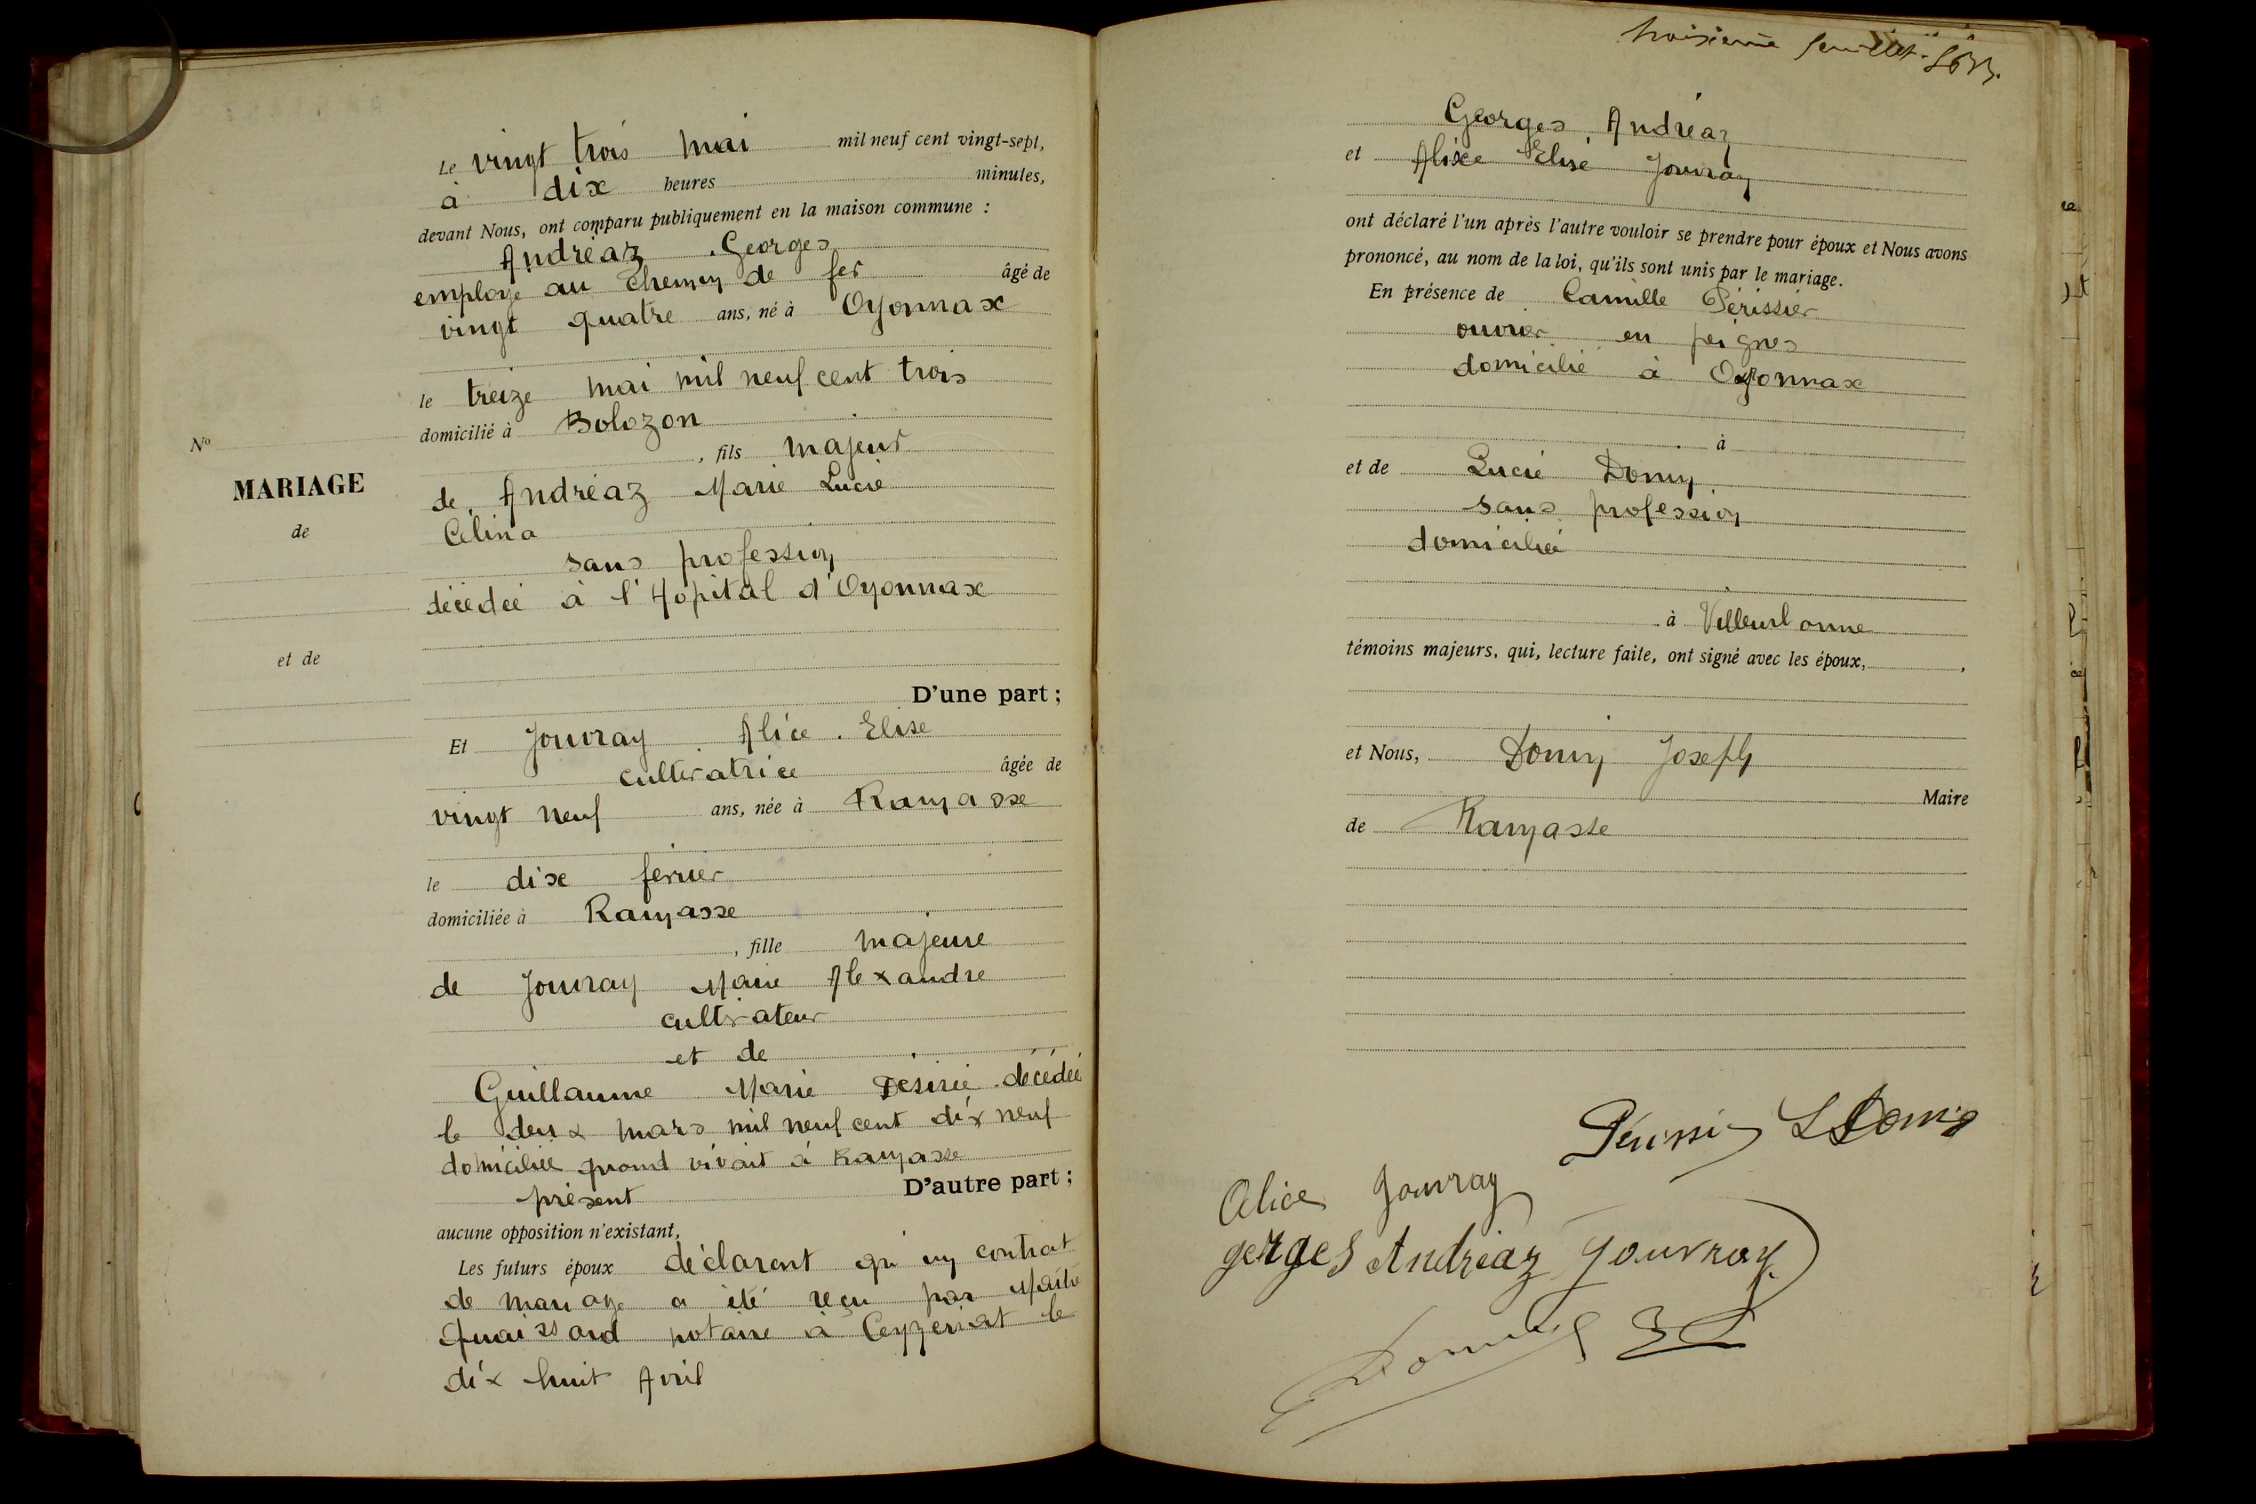 Le vingt trois mai mil neuf cent vingt-sept,
à dix heures minutes,
devant Nous, ont comparu publiquement en la maison commune :
Andréaz Georges
employé au chemin de fer âgé de
vingt quatre ans, né à Oyonnax
le treize mai mil neuf cent trois
domicilié à Bolozon
, fils majeur
de Andréaz Marie Lucie
Célina
sans profession
décédée à l'Hopital d'Oyonnax
D'une part ;
Et Jouvray Alice Elise
cultivatrice âgée de
vingt neuf ans, née à Ramasse
le dix février
domiciliée à Ramasse
, fille majeure
de Jouvray Marie Alexandre
cultivateur
et de
Guillaume Marie Désirée décédée
le deux mars mil neuf cent dix neuf
domiciliée quand vivait à Ramasse
présent D'autre part ;
aucune opposition n'existant,
Les futurs époux déclarent qu'un contrat
de mariage a été reçu par Maître
Quaissard notaire à Ceyzériat le
dix huit Avril
No
MARIAGE
de
et de
troisième feuillet.
Georges Andréaz
et Alixe Elise Jouvray
ont déclaré l'un après l'autre vouloir se prendre pour époux et Nous avons
prononcé, au nom de la loi, qu'ils sont unis par le mariage.
En présence de Camille Périssier
ouvrier en peignes
domicilié à Oyonnax
à
et de Lucie Domy
sans profession
domiciliée
à Villeurbanne
témoins majeurs, qui, lecture faite, ont signé avec les époux, ,
et Nous, Domy Joseph
Maire
de Ramasse
Périssier L Domy
Alice Jouvray
gerges Andréaz Jouvray
Domy